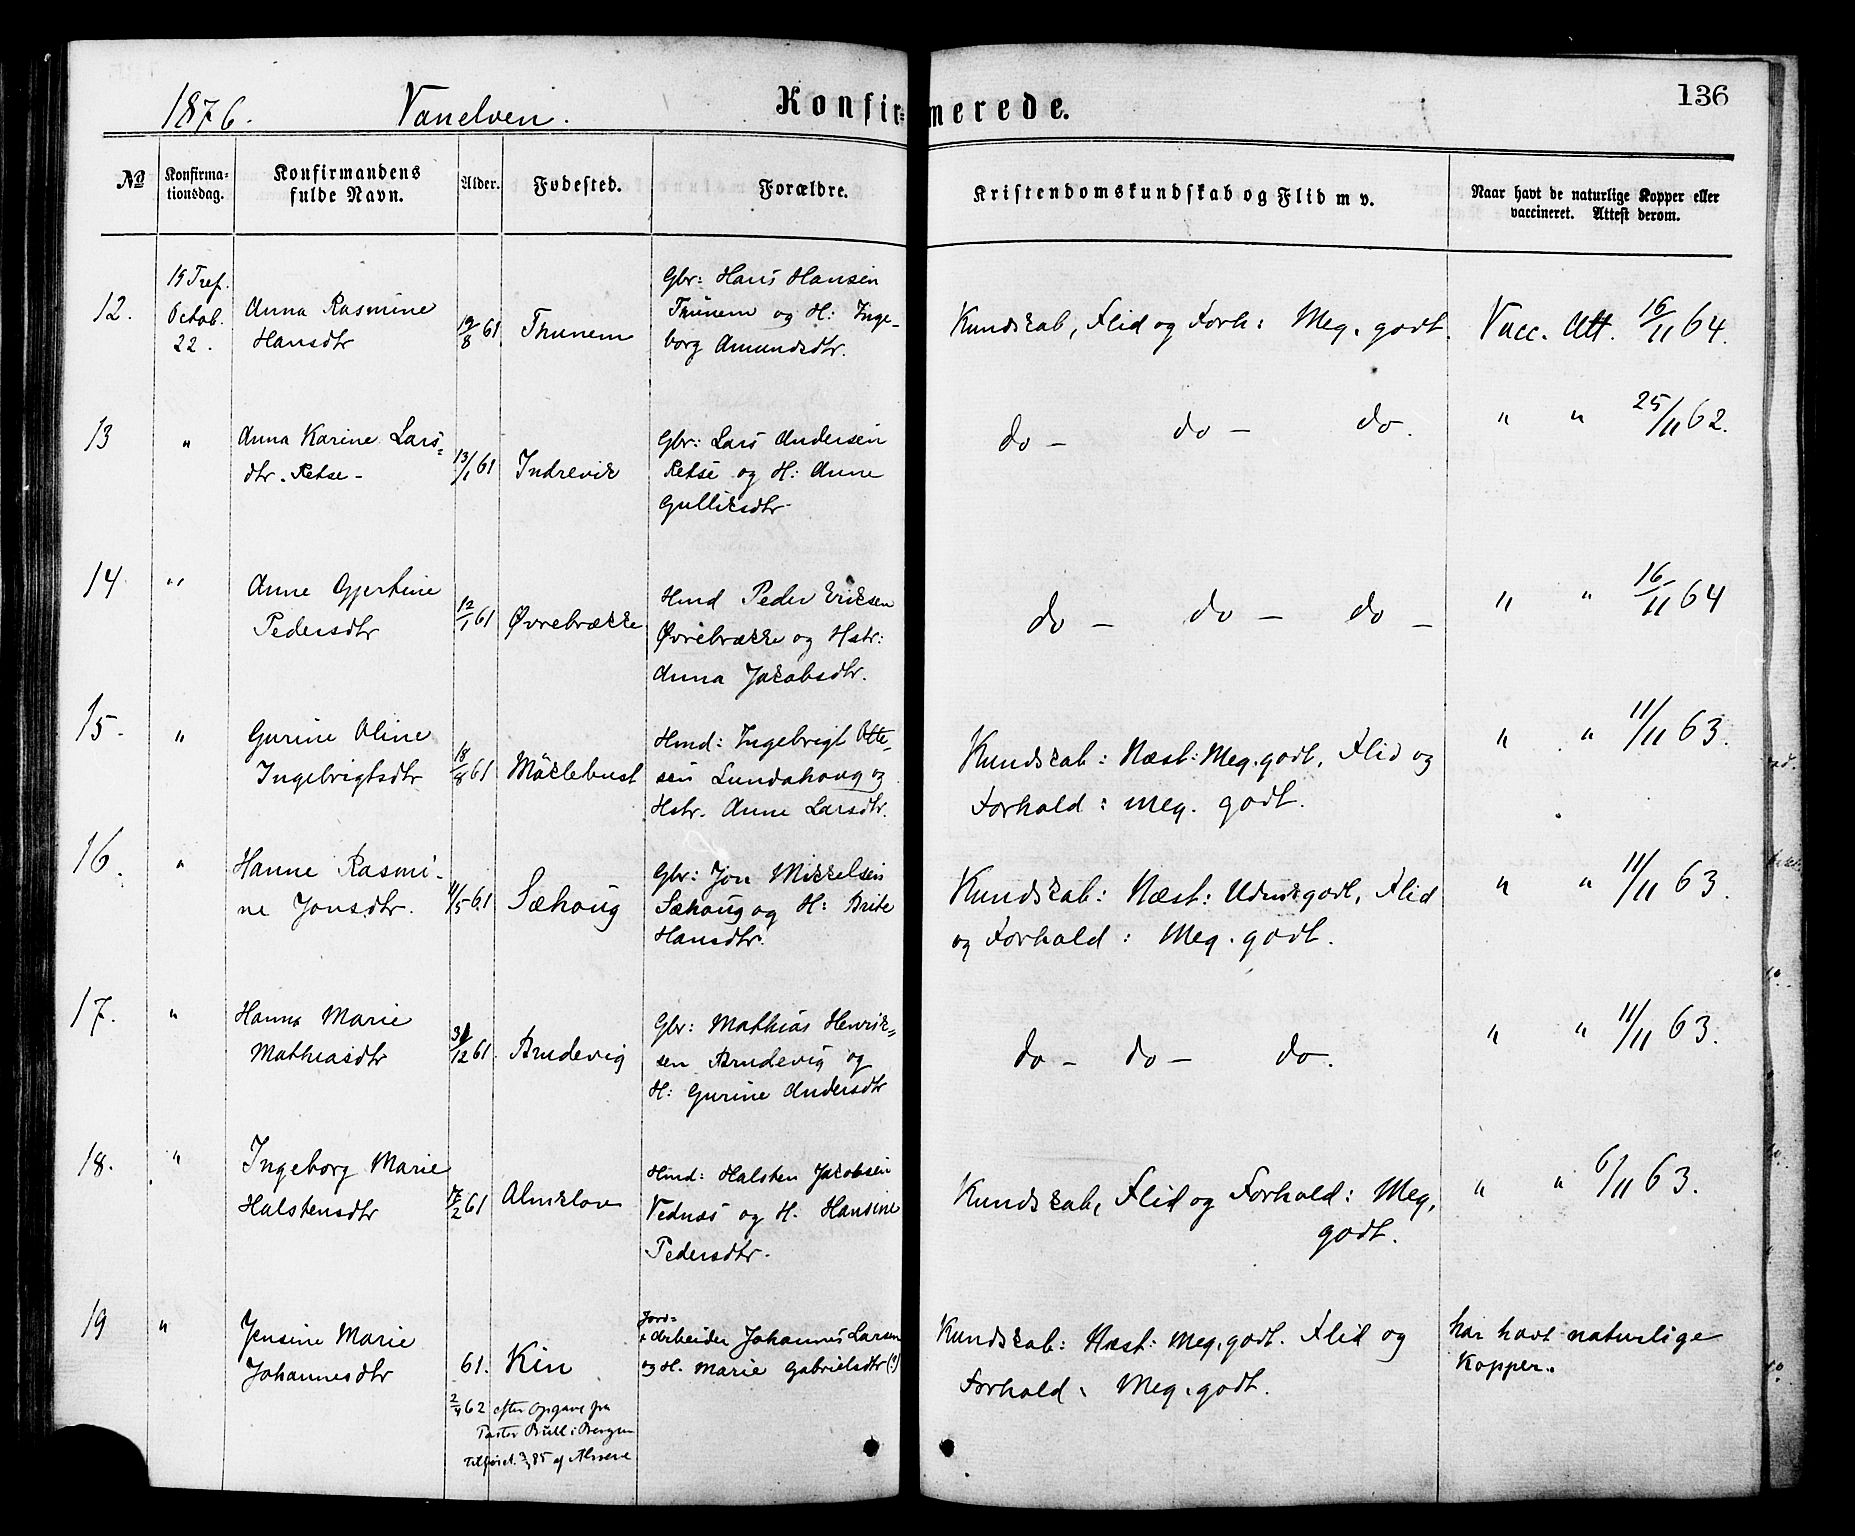 1876. Vanelven. Konfirmerede. 136
No Konfirmationsdag. Konfirmandens fulde Navn. Alder. Fødested. Forældre. Kristendomskundskab og Flid m v. Naar havt de naturlige Kopper eller vaccineret. Attest derom.
12. 19 Tref. Octob. 22. Anna Rasmine Hansdtr 19/8 61 Thunem Gbr: Hans Hansen Thunem og H: Ingeborg Amundsdtr. Kundskab, Flid og Forh: Meg. godt. Vacc. Att. 16/11 64.
13 " Anna Karine Larsdtr. Retse - 13/1 61 Indrevik Gbr: Lars Andersen Retse og H: Anne Gulliksdtr. do - do - do. " " 25/11 62.
14 " Anne Gjertine Pedersdtr 12/1 61 Øvrebrække Hmd Peder Eriksen Øvrebrække og Hstr: Anna Jakobsdtr. do - do - do - " " 16/11 64
15. " Gurine Oline Ingebrigtsdtr 18/8 61 Möklebust Hmd: Ingebrigt Ottesen Lundahoug og Hstr. Anne Larsdtr. Kundskab: Næst: Meg. godt, Flid og Forhold: meg. godt. " " 11/11 63.
16. " Hanne Rasmine Jonsdtr. 11/5 61 Sæhoug Gbr: Jon Mikkelsen Sæhoug og H: Brite Hansdtr. Kundskab: Næst: Udm godt, Flid og Forhold: Meg. godt. " " 11/11 63.
17. " Hanna Marie Mathiasdtr 31/12 61. Brudevig Gbr: Mathias Henriksen Brudevig og H: Gurine Andersdtr do - do - do. " " 11/11 63.
18. " Ingeborg Marie Halstensdtr 7/2 61 Almklov Hmd: Halsten Jakobsen Vednes og H. Hansine Pedersdtr. Kundskab, Flid og Forhold: Meg. godt. " " 6/11 63.
19 " Jensine Marie Johannesdtr 61. Kin Jord=arbeider Johannes Larsen og H. Marie Gabrielsdtr (?) Kundskab: Næst: Meg. godt. Flid og Forhold, Meg. godt. har havt naturlige Kopper.
2/4 62 efter Opgave fra
Pastor Bull i Bergen
tilføiet 3/ 85 af